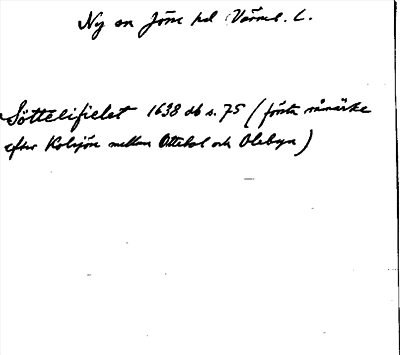 Ny sn Jösse hd Värml. L.
Söttelifielet 1638 db s. 75 (första råmärke
efter Kolsjön mellan Ottebol och Olebyn)